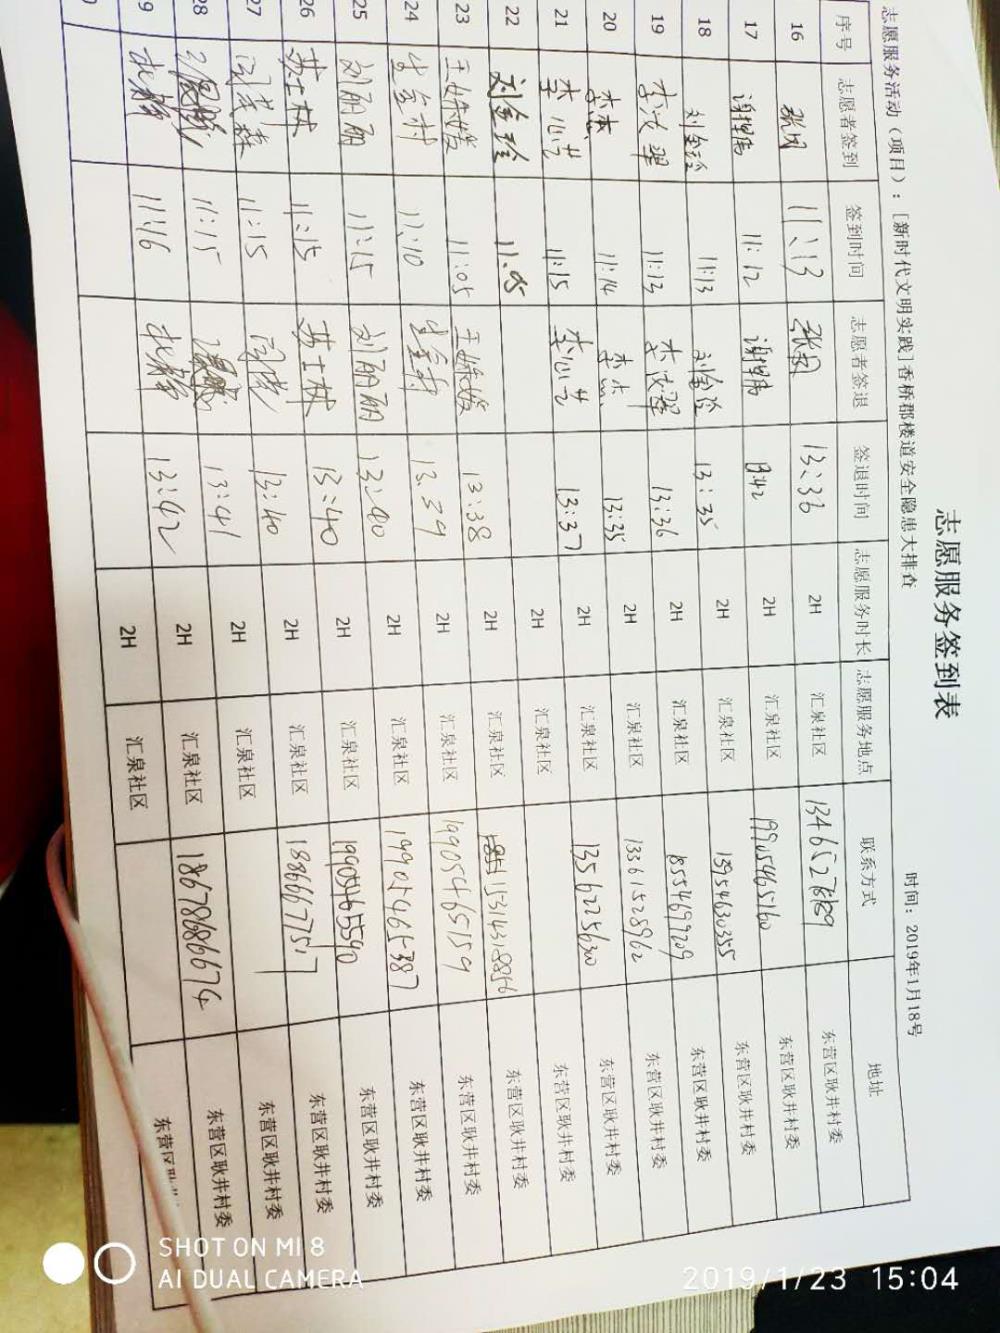 志愿服务签到表
志愿服务活动（项目）：[新时代文明实践]香桥郡楼道安全隐患大排查 时间：2019年1月18号
序号 志愿者签到 签到时间 志愿者签退 签退时间 志愿服务时长 志愿服务地点 联系方式 地址
16 11:13 13:36 2H 汇泉社区 东营区耿井村委
17 11:12 13:42 2H 汇泉社区 19905465160 东营区耿井村委
18 刘金玲 11:13 刘金玲 13:35 2H 汇泉社区 15954630355 东营区耿井村委
19 李文翠 11:13 李文翠 13:36 2H 汇泉社区 东营区耿井村委
20 李杰 11:14 李杰 13:35 2H 汇泉社区 13361528962 东营区耿井村委
21 李心芸 11:15 李心芸 13:37 2H 汇泉社区 13562256300 东营区耿井村委
22 刘金玲 11:05 2H 汇泉社区 东营区耿井村委
23 11:05 13:38 2H 汇泉社区 东营区耿井村委
24 11:10 13:39 2H 汇泉社区 19905465159 东营区耿井村委
25 刘丽丽 11:15 刘丽丽 13:40 2H 汇泉社区 19905465387 东营区耿井村委
26 苏士林 11:15 苏士林 13:40 2H 汇泉社区 19905465590 东营区耿井村委
27 11:15 13:40 2H 汇泉社区 18866677517 东营区耿井村委
28 11:15 13:41 2H 汇泉社区 东营区耿井村委
29 11:16 13:42 2H 汇泉社区 18678686674 东营区耿井
SHOT ON MI 8
AI DUAL CAMERA
2019/1/23 15:04